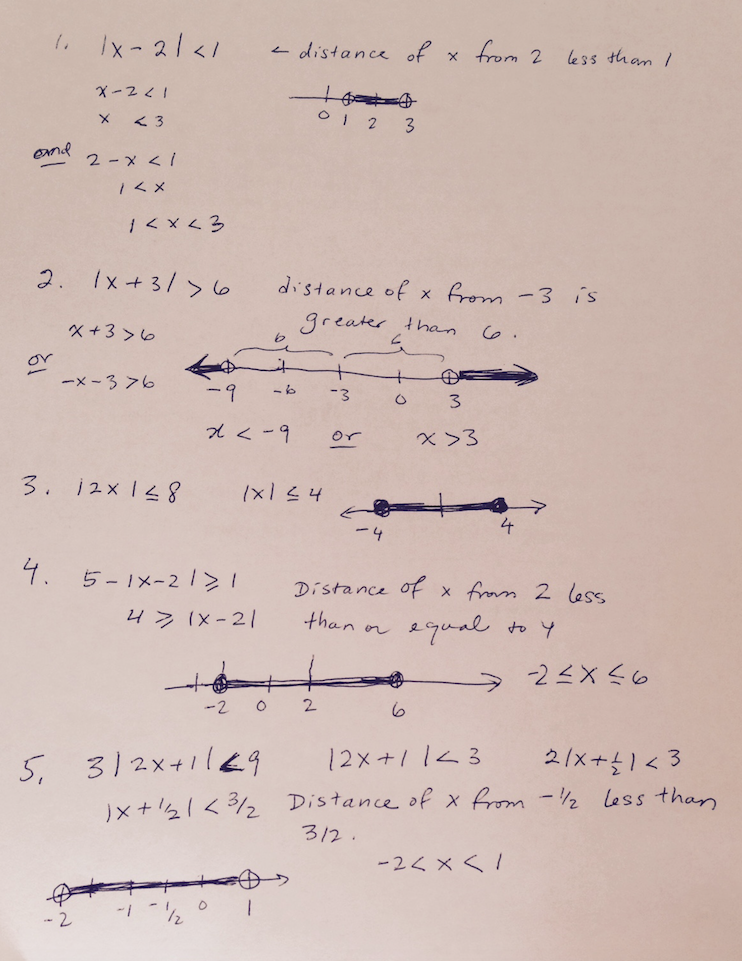 1. |x - 2| < 1 ← distance of x from 2 less than 1
x - 2 < 1
x < 3
0 1 2 3
and 2 - x < 1
1 < x
1 < x < 3
2. |x + 3| > 6 distance of x from -3 is
greater than 6.
x + 3 > 6
6 6
or -x - 3 > 6
-9 -6 -3 0 3
x < -9 or x > 3
3. |2x| ≤ 8 |x| ≤ 4
-4 4
4. 5 - |x - 2| ≥ 1 Distance of x from 2 less
4 ≥ |x - 2| than or equal to 4
-2 ≤ x ≤ 6
-2 0 2 6
5. 3|2x+1| < 9 |2x+1| < 3 2|x+½| < 3
|x+½| < 3/2 Distance of x from -½ less than
3/2.
-2 < x < 1
-2 -1 -½ 0 1